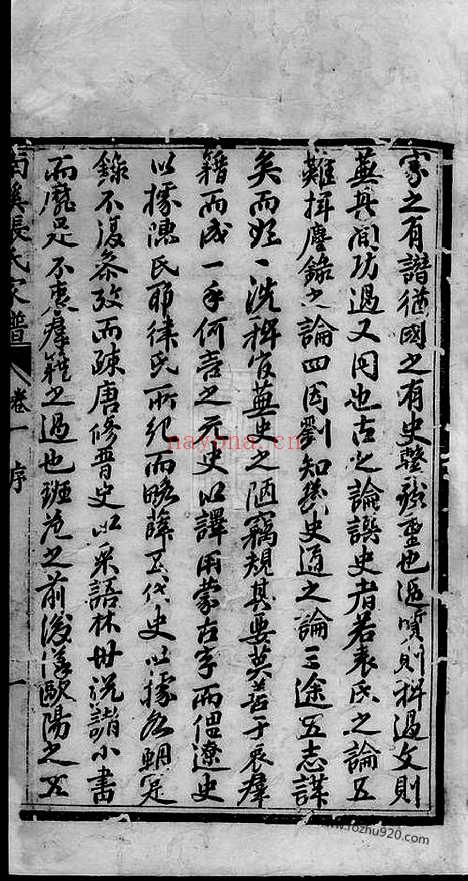 家之有譜猶國之有史豎義一也過質則科過文則
蕪其間功過又同也古之論譔史者若袁氏之論五
難揮麈錄之論四因劉知幾史通之論三途五志謀
矣而好一洗稗官蕪史之陋竊規其要莫善于裒羣
籍而成一手何言之元史以譯用蒙古字而僵遼史
以據陳氏耶律氏所紀而略薛五代史以據各朝實
錄不復叅攷而疎唐修晉史以采語林世說諸小書
而龐是不裒羣籍之過也班范之前後漢歐陽之五
南溪張氏家譜 卷一 序 一
nayona.cn
www.fozhu920.com